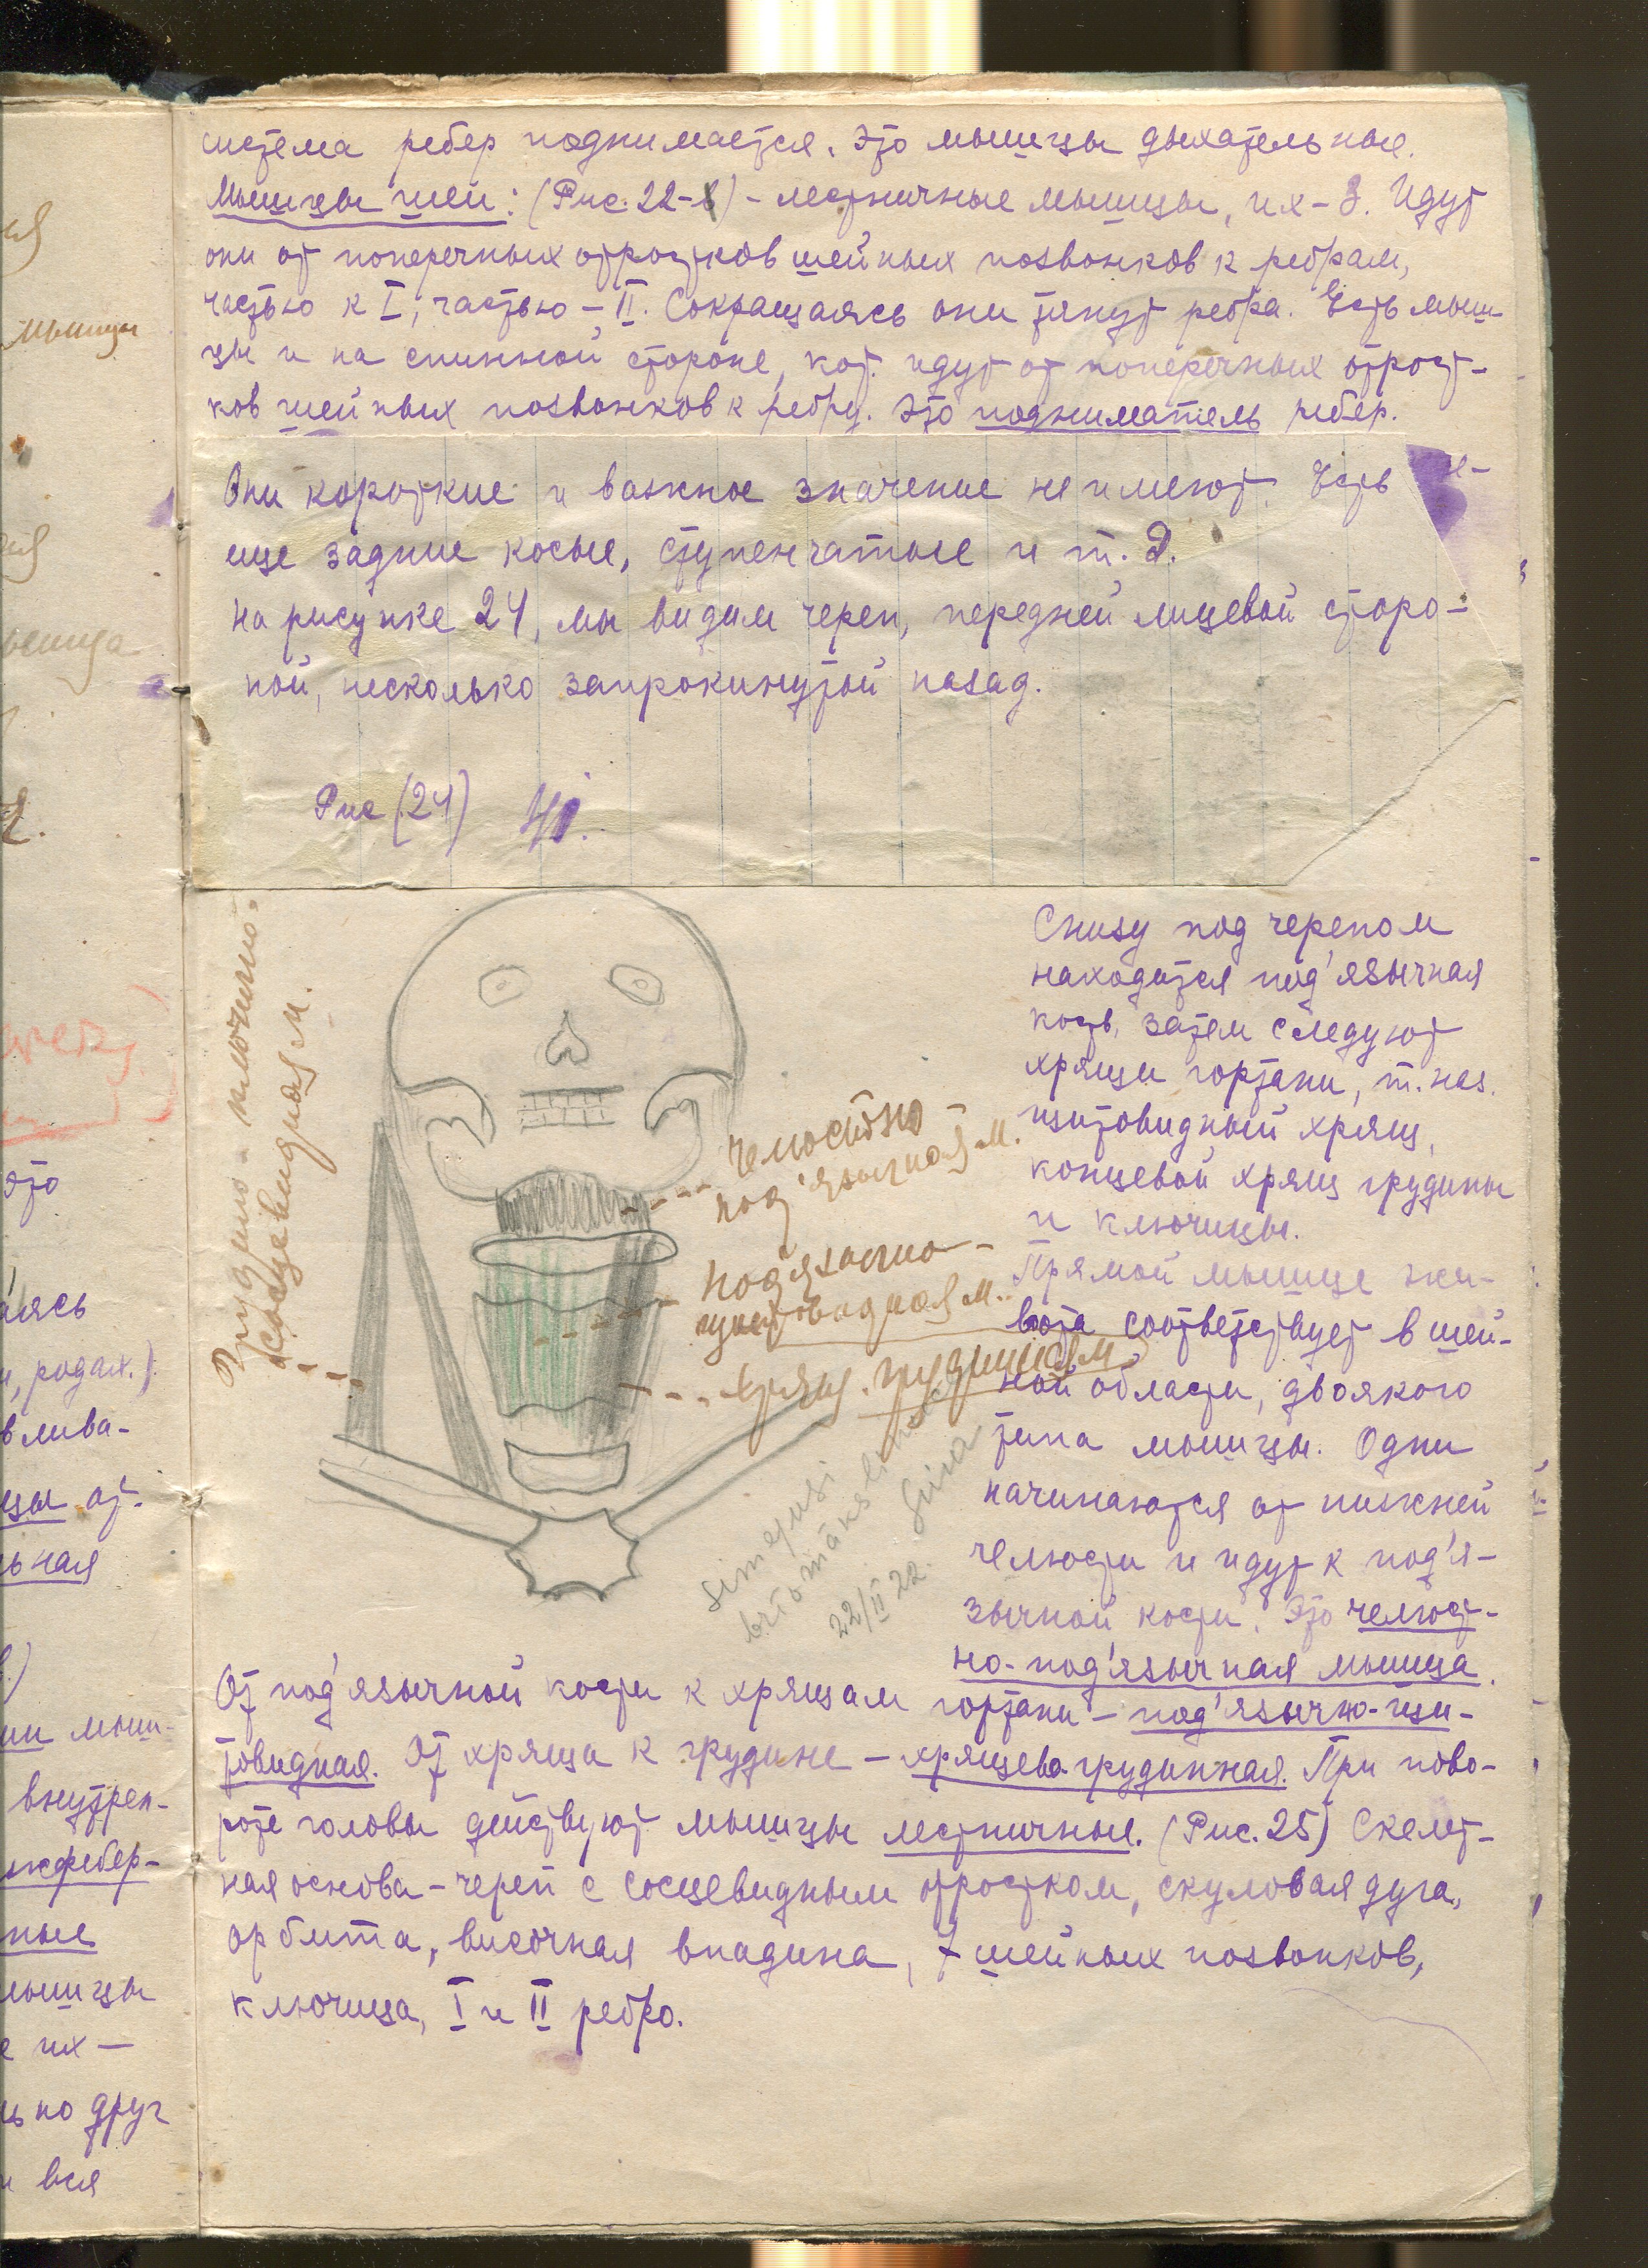 система ребер поднимается. Это мышицы дыхательные.
Мышицы шеи: (Рис. 22-в) - лестничные мышицы, их - 3. Идут
они от поперечных отростков шейных позвонков к ребрам,
частью к I, частью - II. Сокращаясь они тянут ребра. Есть мыш-
цы и на спинной стороне, кот. идут от поперечных отрост-
ков шейных позвонков к ребру. Это подниматель ребер.
Они короткие и важное значение не имеют. Есть
еще задние косые, ступенчатые и т. д.
На рисунке 24, мы видим череп, передней лицевой сторо-
ной, несколько запрокинутой назад.
Рис (24)
Грудино - ключично-
сосцевидная м.
челюстно -
под'язычная м.
Подязычно -
щитовидная м.
хрящ. грудинная м.
simejusi
22/II 22.
Снизу под черепом
находится под'язычная
кость, затем следуют
хрящи гортани, т. наз.
щитовидный хрящ,
концевой хрящ грудины
и ключицы.
Прямой мышице жи-
вота соответствует в шей-
ной области, двоякого
типа мышицы. Одни
начинаются от нижней
челюсти и идут к под'я-
зычной кости. Это челюст-
но-под'язычная мышца.
От под'язычной кости к хрящам гортани - под'язычно-щи-
товидная. От хряща к грудине - хрящевогрудинная. При пово-
роте головы действуют мышицы лестничные. (Рис. 25) Скелет-
ная основа - череп с сосцевидным отростком, скуловая дуга,
орбита, височная впадина, 7 шейных позвонков,
ключица, I и II ребро.
мышицы
это
аясь
и, родах.)
влива-
цы от-
ьная
ии мыш-
внутрен-
межребер-
ные
мышицы
е их -
ьно друг
и вся